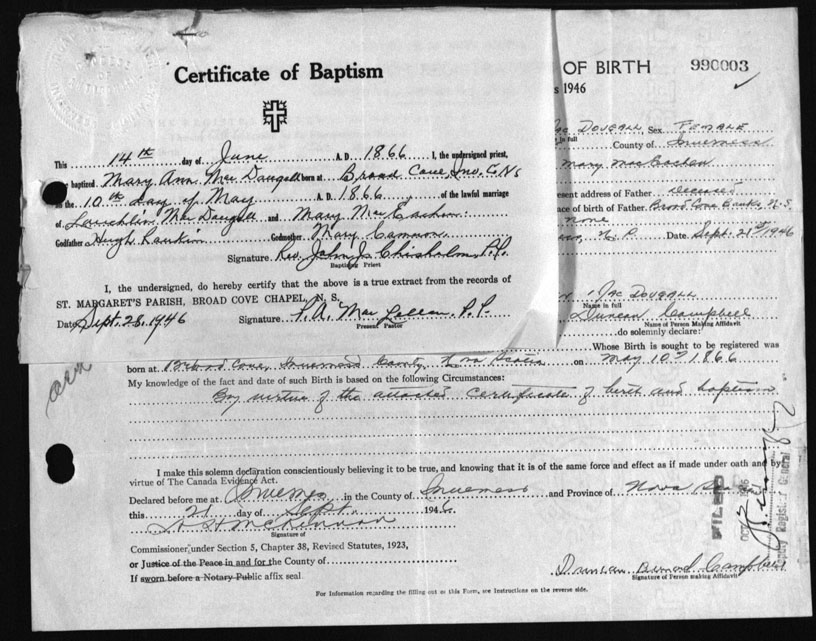 Certificate of Baptism
This 14th day of June A. D. 1866 I, the undersigned priest,
baptized Mary Ann Mac Dougall born at Broad Cove, Inv. C. N.S.
the 10th day of May A. D. 1866, of the lawful marriage
of Lauchlin Mac Dougall and Mary Mac
Godfather Hugh Rankin Godmother Mary
Signature Rev. John J. Chisholm, P.P.
Baptizing Priest
I, the undersigned, do hereby certify that the above is a true extract from the records of
ST. MARGARET'S PARISH, BROAD COVE CHAPEL, N. S.
Date Sept. 28, 1946 Signature P.P.
Present Pastor
OF BIRTH 990003
1946
Mac Dougall, Sex Female
in full
County of Inverness
Mary Mac
present address of Father deceased
ace of birth of Father Broad Cove Banks, N.S.
None
Date Sept. 21st 1946
Mac Dougall
Name in full
Duncan Campbell
Name of Person Making Affidavit
do solemnly declare:
Whose Birth is sought to be registered was
born at Broad Cove, Inverness County, Nova Scotia on May 10th 1866
My knowledge of the fact and date of such Birth is based on the following Circumstances:
By virtue of the attached certificate of birth and baptism
I make this solemn declaration conscientiously believing it to be true, and knowing that it is of the same force and effect as if made under oath and by
virtue of The Canada Evidence Act.
Declared before me at Inverness in the County of Inverness and Province of Nova
this 21 day of Sept. 1946
McKinnon
Signature of
Commissioner under Section 5, Chapter 38, Revised Statutes, 1923,
or Justice of the Peace in and for the County of
If sworn before a Notary Public affix seal.
Duncan Bernard Campbell
Signature of Person making Affidavit
For Information regarding the filling out of this Form, see Instructions on the reverse side.
FILED
Deputy Registrar General